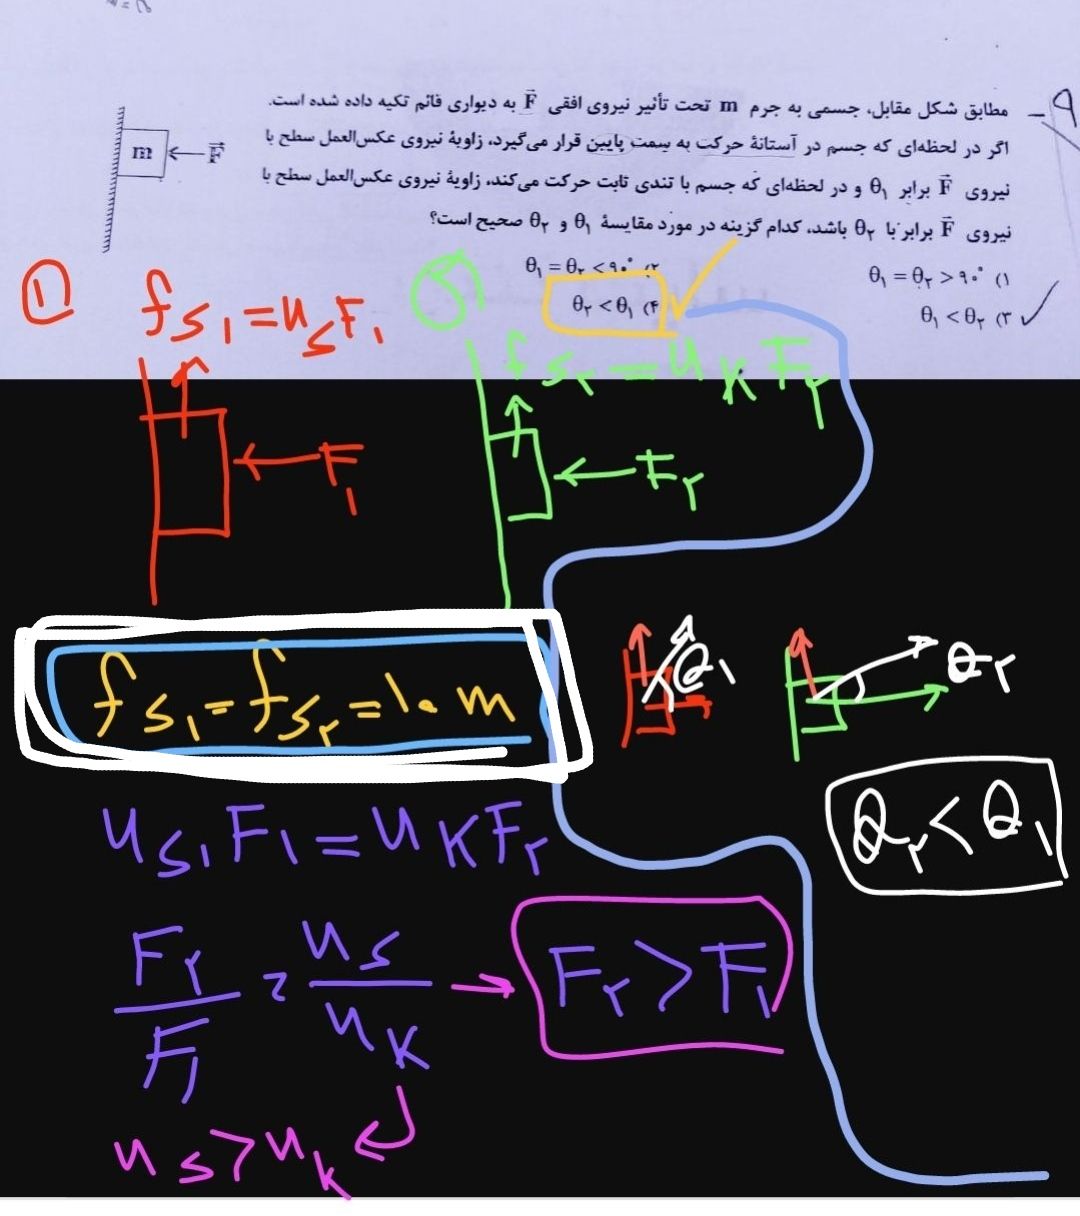 ۹ - مطابق شکل مقابل، جسمی به جرم m تحت تأثیر نیروی افقی F⃗ به دیواری قائم تکیه داده شده است.
اگر در لحظه‌ای که جسم در آستانهٔ حرکت به سمت پایین قرار می‌گیرد، زاویهٔ نیروی عکس‌العمل سطح با
نیروی F⃗ برابر θ₁ و در لحظه‌ای که جسم با تندی ثابت حرکت می‌کند، زاویهٔ نیروی عکس‌العمل سطح با
نیروی F⃗ برابر با θ₂ باشد، کدام گزینه در مورد مقایسهٔ θ₁ و θ₂ صحیح است؟
m F⃗
۱) θ₁ = θ₂ > ۹۰°
۲) θ₁ = θ₂ < ۹۰°
۳) θ₁ < θ₂
۴) θ₂ < θ₁
①
fs₁ = usF₁
fs₂ = uKF₂
F₁
F₂
fs₁ = fs₂ = ۱۰m
θ₁
θ₂
us₁F₁ = uKF₂
θ₂ < θ₁
F₂/F₁ = us/uK → F₂ > F₁
us > uk